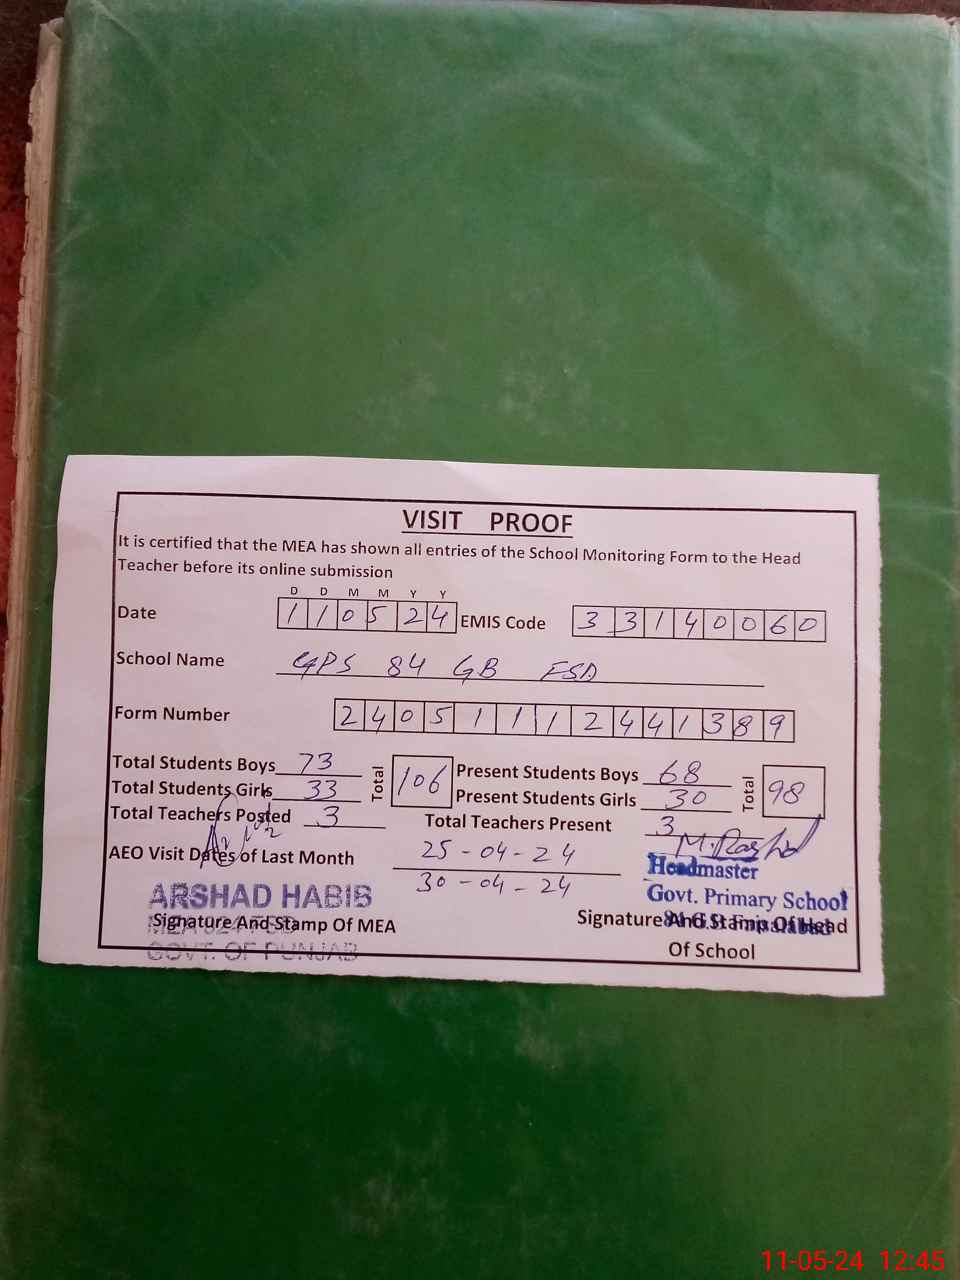 VISIT PROOF
It is certified that the MEA has shown all entries of the School Monitoring Form to the Head
Teacher before its online submission
D D M M Y Y
Date 1 1 0 5 2 4 EMIS Code 3 3 1 4 0 0 6 0
School Name GPS 84 GB FSD
Form Number 2 4 0 5 1 1 1 2 4 4 1 3 8 9
Total Students Boys 73 Total 106 Present Students Boys 68 Total 98
Total Students Girls 33 Present Students Girls 30
Total Teachers Posted 3 Total Teachers Present 3
M. Rashid
AEO Visit Dates of Last Month 25-04-24
30-04-24
Headmaster
Govt. Primary School
ARSHAD HABIB
Signature And Stamp Of MEA
GOVT. OF PUNJAB
Signature And Stamp Of Head
Of School
11-05-24 12:45